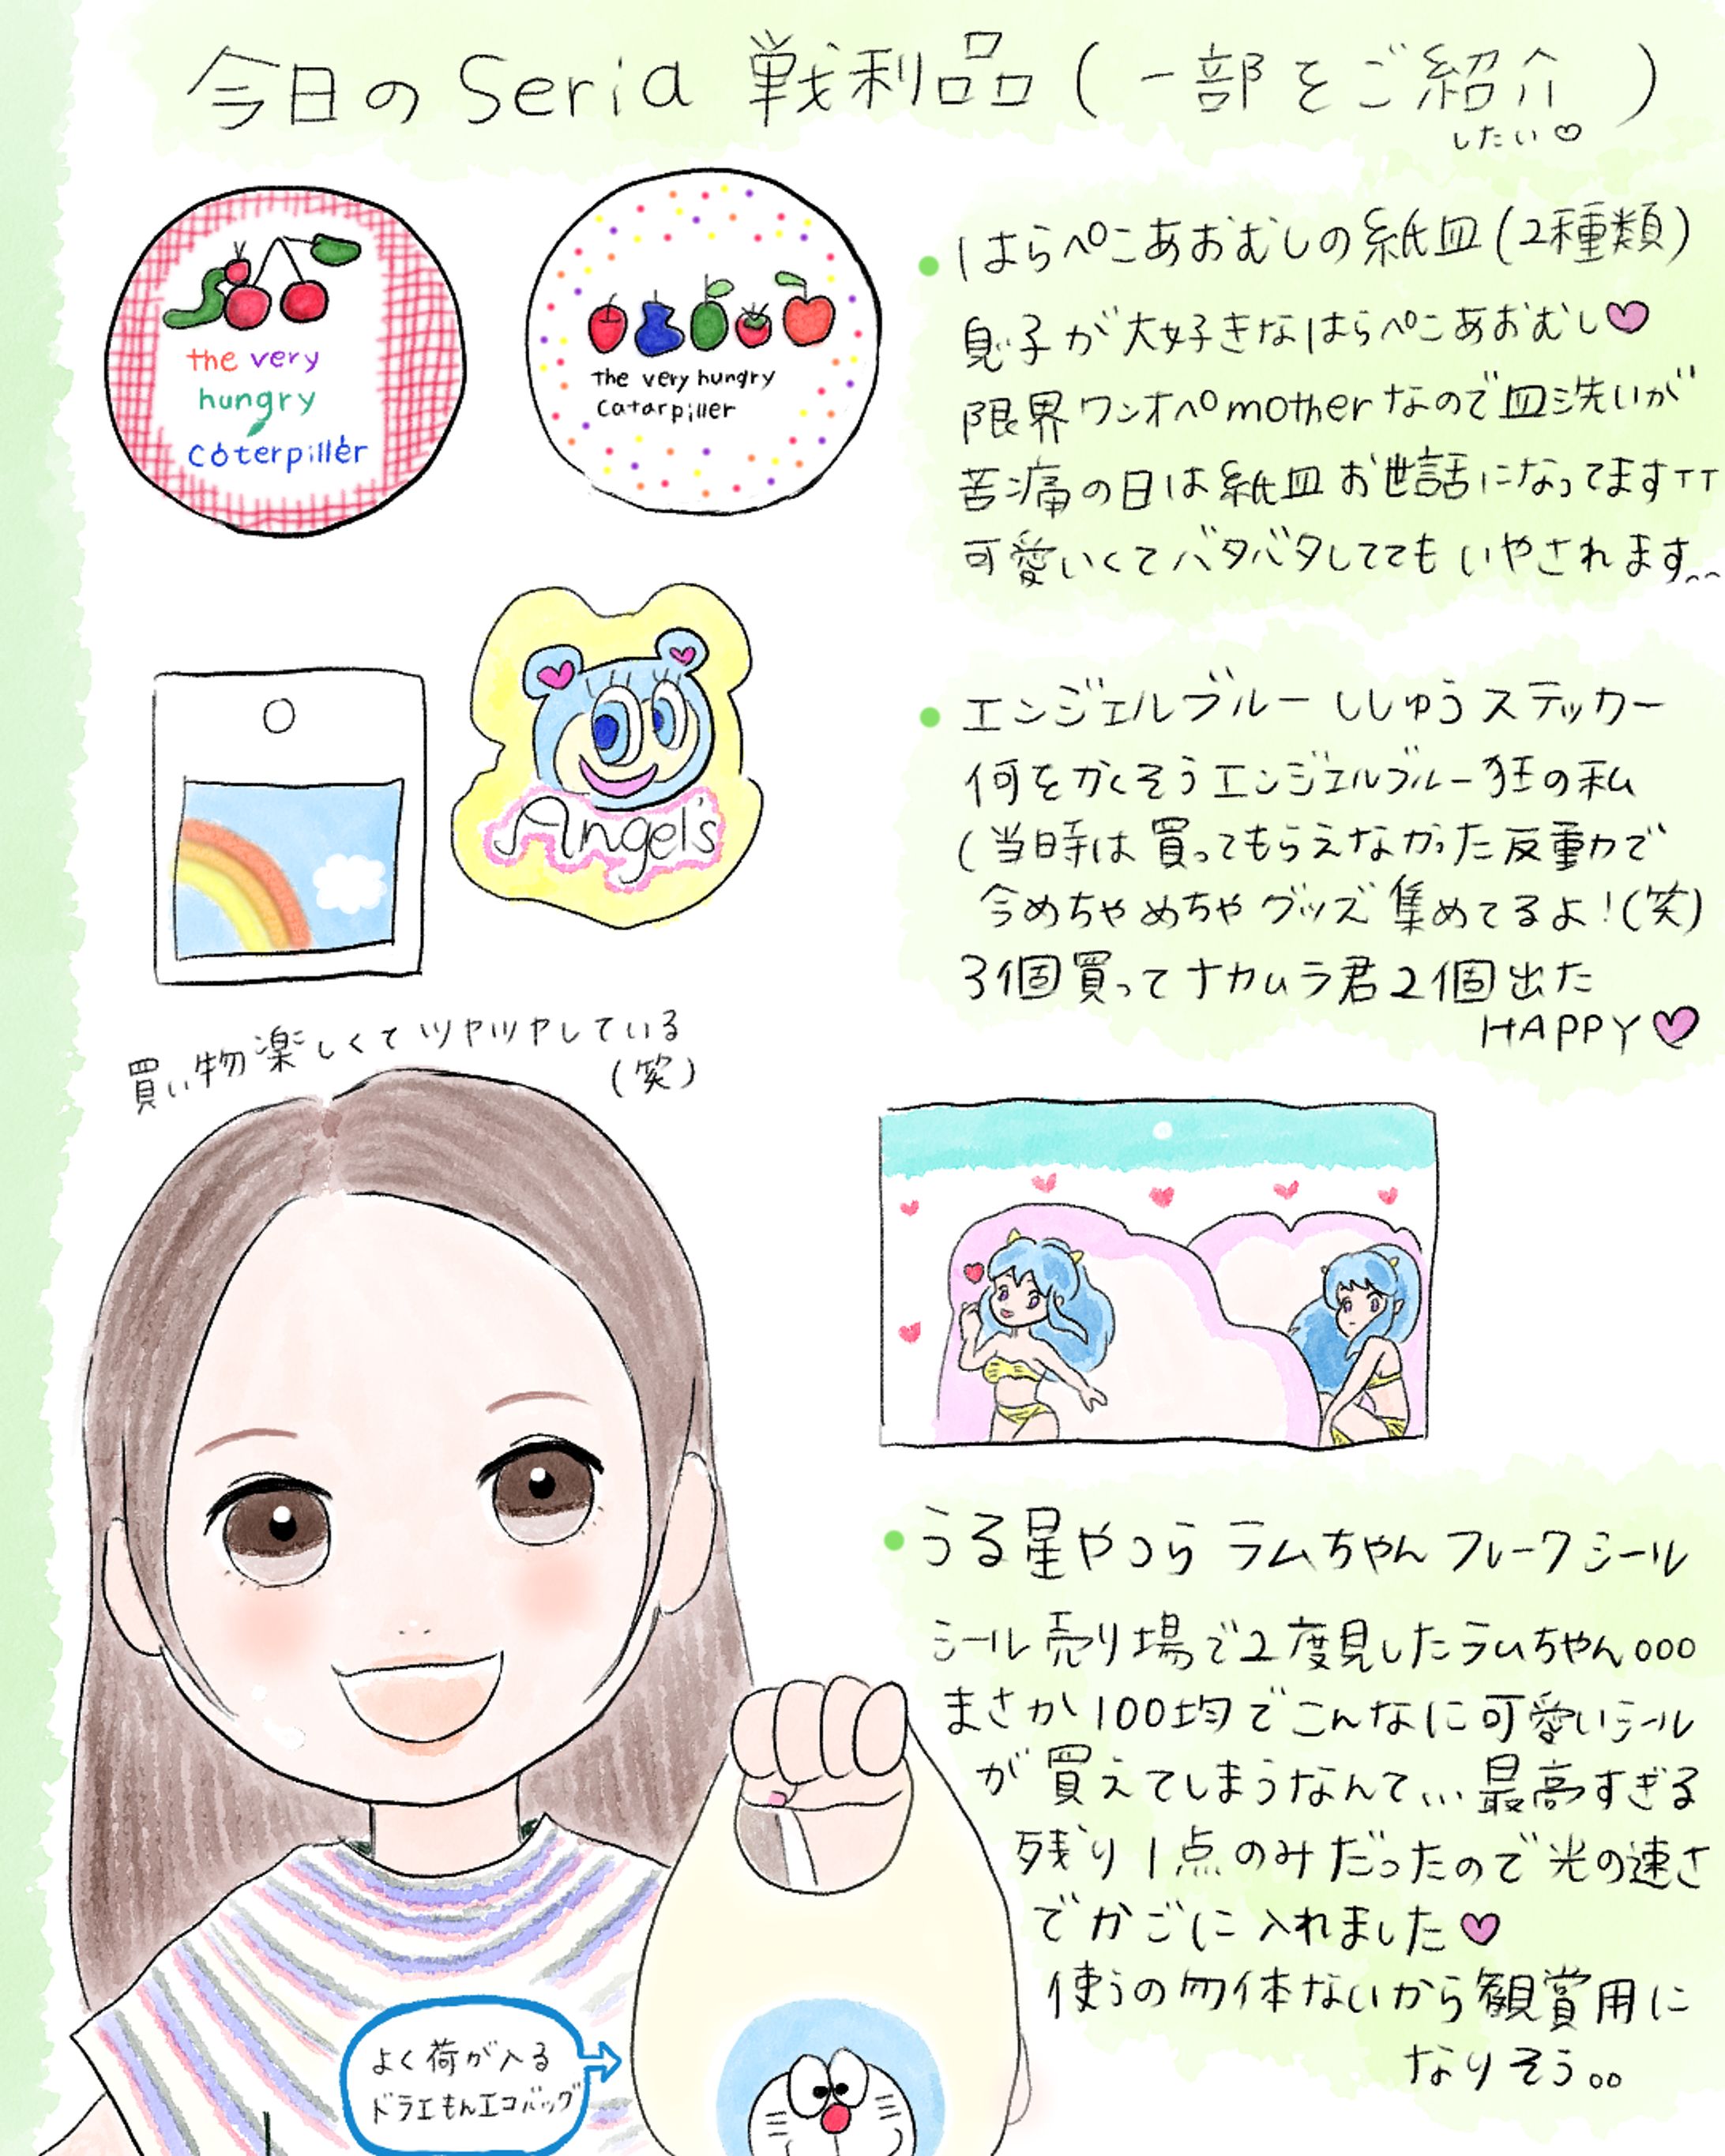 今日のSeria 戦利品(一部をご紹介)
したい♡
the very
hungry
caterpiller
The very hungry
Catarpiller
・はらぺこあおむしの紙皿(2種類)
息子が大好きなはらぺこあおむし♥
限界ワンオペmotherなので皿洗いが
苦痛の日は紙皿お世話になってますTT
可愛いくてバタバタしててもいやされます^^
Angel's
・エンジェルブルー ししゅうステッカー
何をかくそうエンジェルブルー狂の私
(当時は買ってもらえなかった反動力で
今めちゃめちゃグッズ集めてるよ!(笑)
3個買ってナカムラ君2個出た
HAPPY♥
買い物楽しくてツヤツヤしている
(笑)
・うる星やつら ラムちゃん フレークシール
シール売り場で2度見したラムちゃん。。。
まさか100均でこんなに可愛いシール
が買えてしまうなんて...最高すぎる
残り1点のみだったので光の速さ
でかごに入れました♥
使うの勿体ないから観賞用に
なりそう。。
よく荷が入る
ドラエもんエコバッグ